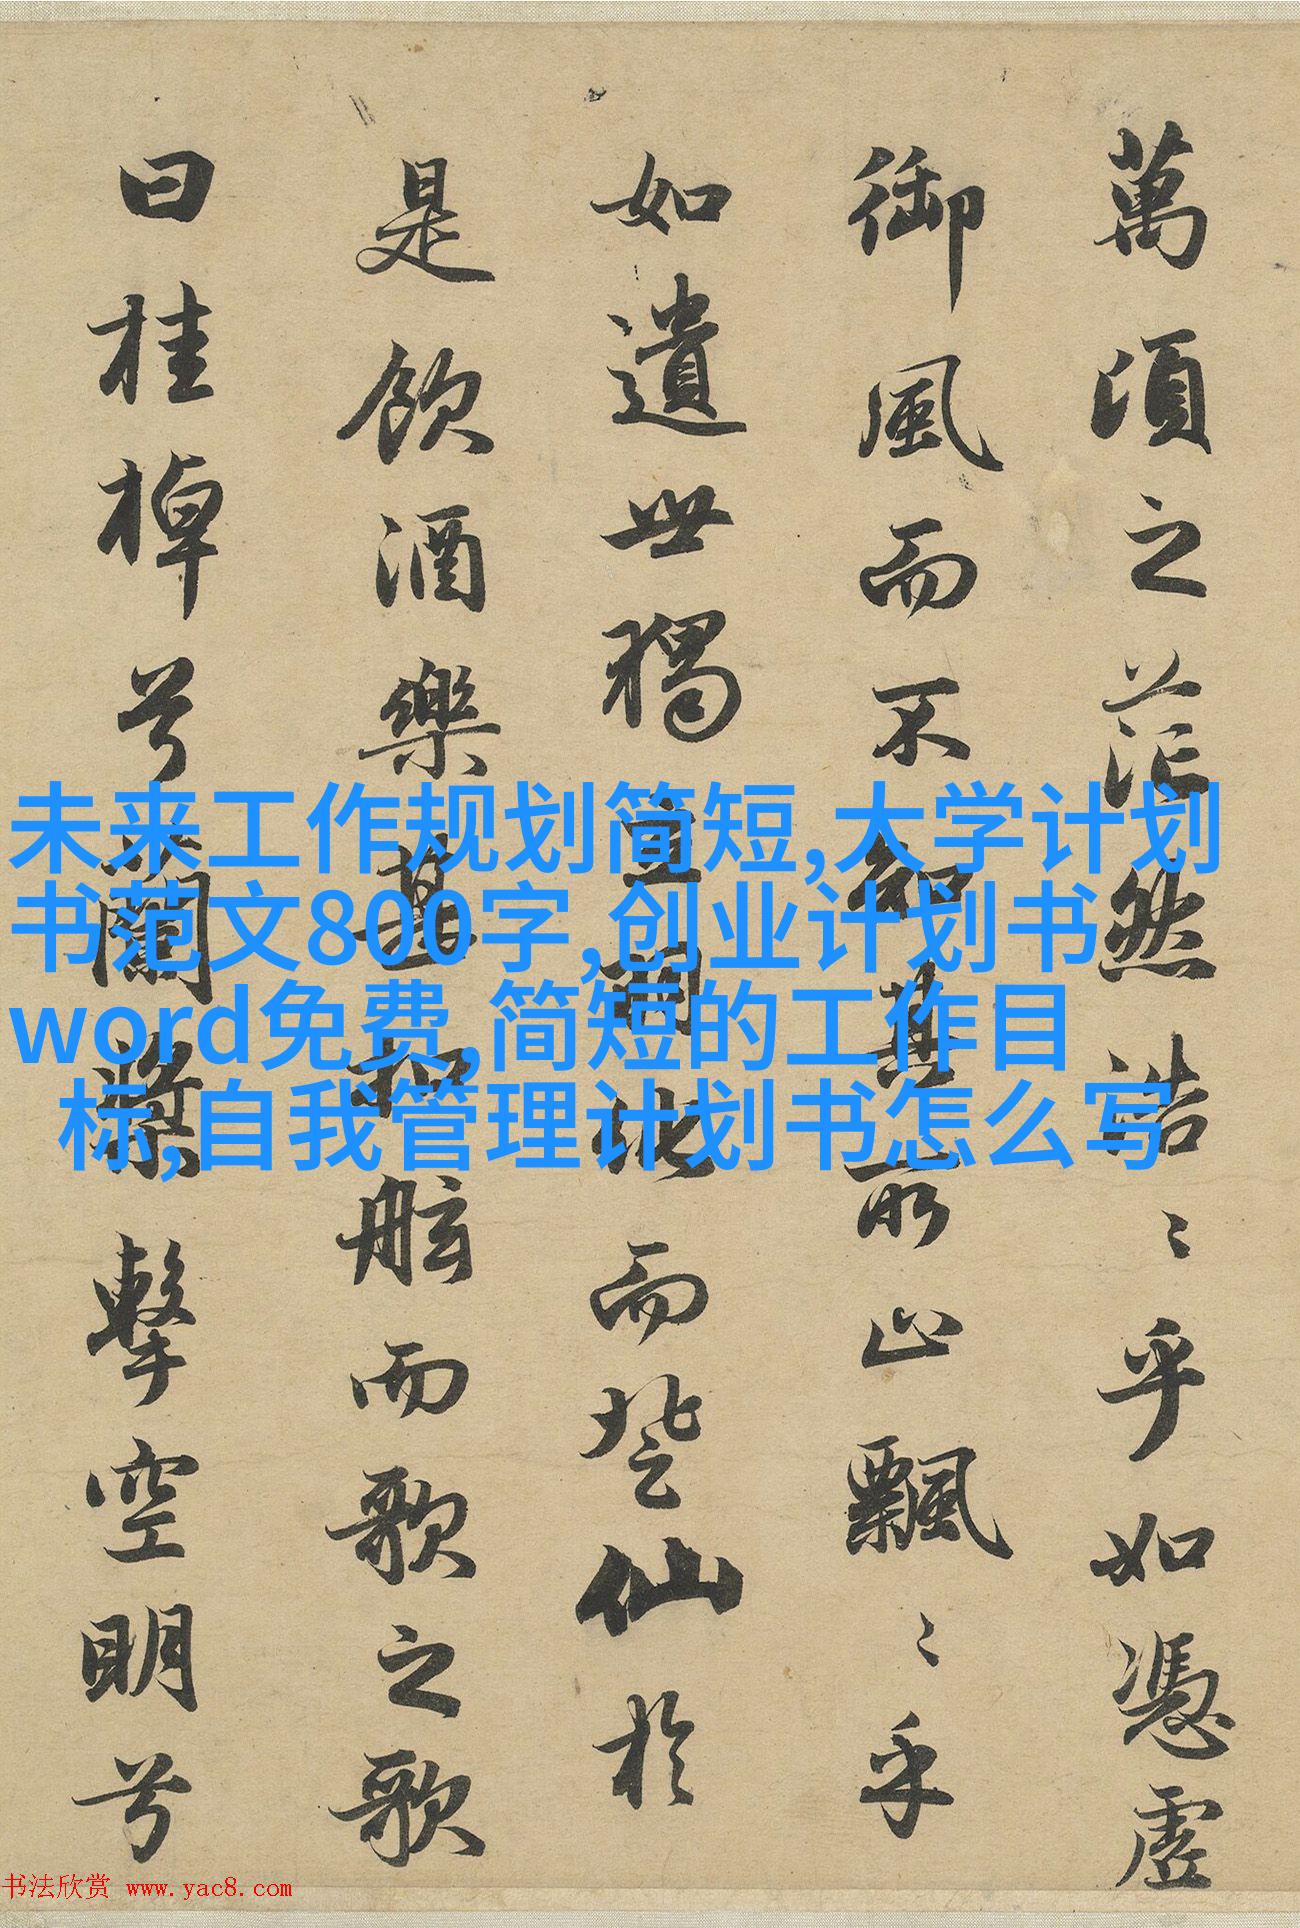 萬頃之茫然浩〻乎如憑虛
御風而不知其所止飄〻乎
如遺世獨立羽化而登仙於
是飲酒樂甚扣舷而歌之歌
曰桂棹兮蘭槳擊空明兮
未来工作规划简短,大学计划
书范文800字,创业计划书
word免费,简短的工作目
标,自我管理计划书怎么写
书法欣赏 www.yac8.com